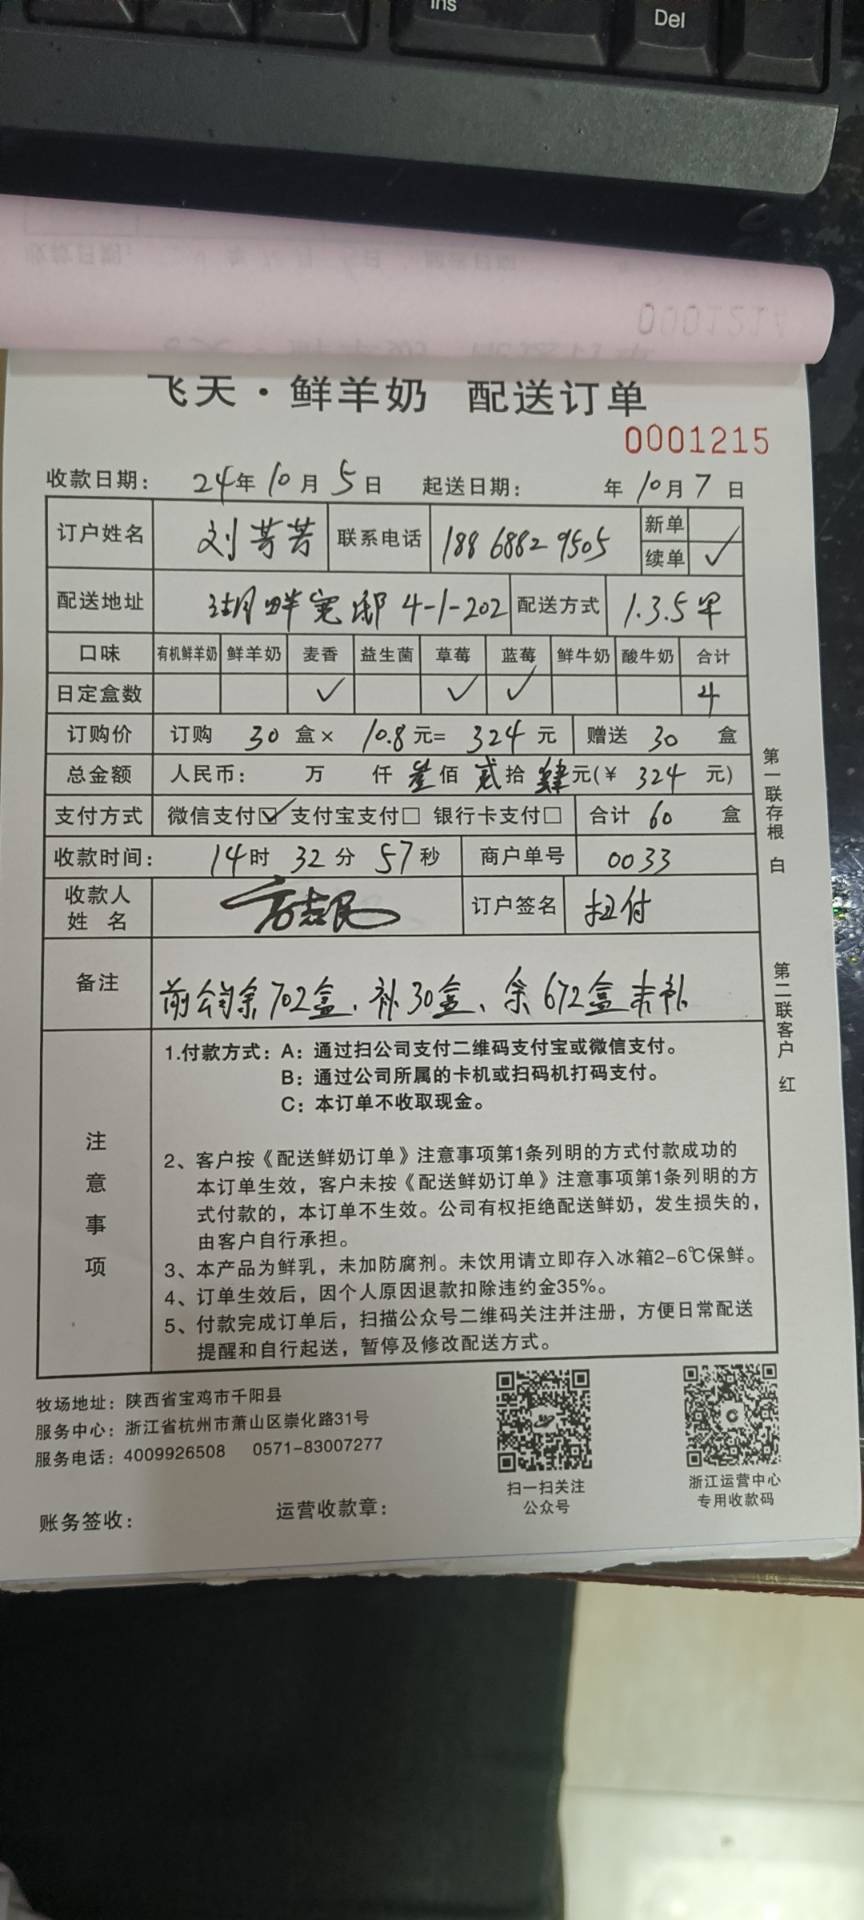 Ins
Del
飞天·鲜羊奶 配送订单
0001215
收款日期: 24年10月5日 起送日期: 年10月7日
订户姓名 刘芳芳 联系电话 18868829505 新单
续单 ✓
配送地址 湖畔寓邸 4-1-202 配送方式 1.3.5早
口味 有机鲜羊奶 鲜羊奶 麦香 益生菌 草莓 蓝莓 鲜牛奶 酸牛奶 合计
日定盒数 ✓ ✓ ✓ 4
订购价 订购 30 盒× 10.8元= 324元 赠送 30 盒
总金额 人民币: 万 仟 叁佰 贰拾 肆元(¥ 324 元)
支付方式 微信支付☑ 支付宝支付□ 银行卡支付□ 合计 60 盒
收款时间: 14时 32分 57秒 商户单号 0033
收款人
姓 名 订户签名 扫付
备注 前公司余702盒、补30盒、余672盒未补
注意事项
1.付款方式: A: 通过扫公司支付二维码支付宝或微信支付。
B: 通过公司所属的卡机或扫码机打码支付。
C: 本订单不收取现金。
2、客户按《配送鲜奶订单》注意事项第1条列明的方式付款成功的
本订单生效，客户未按《配送鲜奶订单》注意事项第1条列明的方
式付款的，本订单不生效。公司有权拒绝配送鲜奶，发生损失的，
由客户自行承担。
3、本产品为鲜乳，未加防腐剂。未饮用请立即存入冰箱2-6℃保鲜。
4、订单生效后，因个人原因退款扣除违约金35%。
5、付款完成订单后，扫描公众号二维码关注并注册，方便日常配送
提醒和自行起送，暂停及修改配送方式。
第一联存根 白
第二联客户 红
牧场地址: 陕西省宝鸡市千阳县
服务中心: 浙江省杭州市萧山区崇化路31号
服务电话: 4009926508 0571-83007277
扫一扫关注
公众号
浙江运营中心
专用收款码
账务签收: 运营收款章: